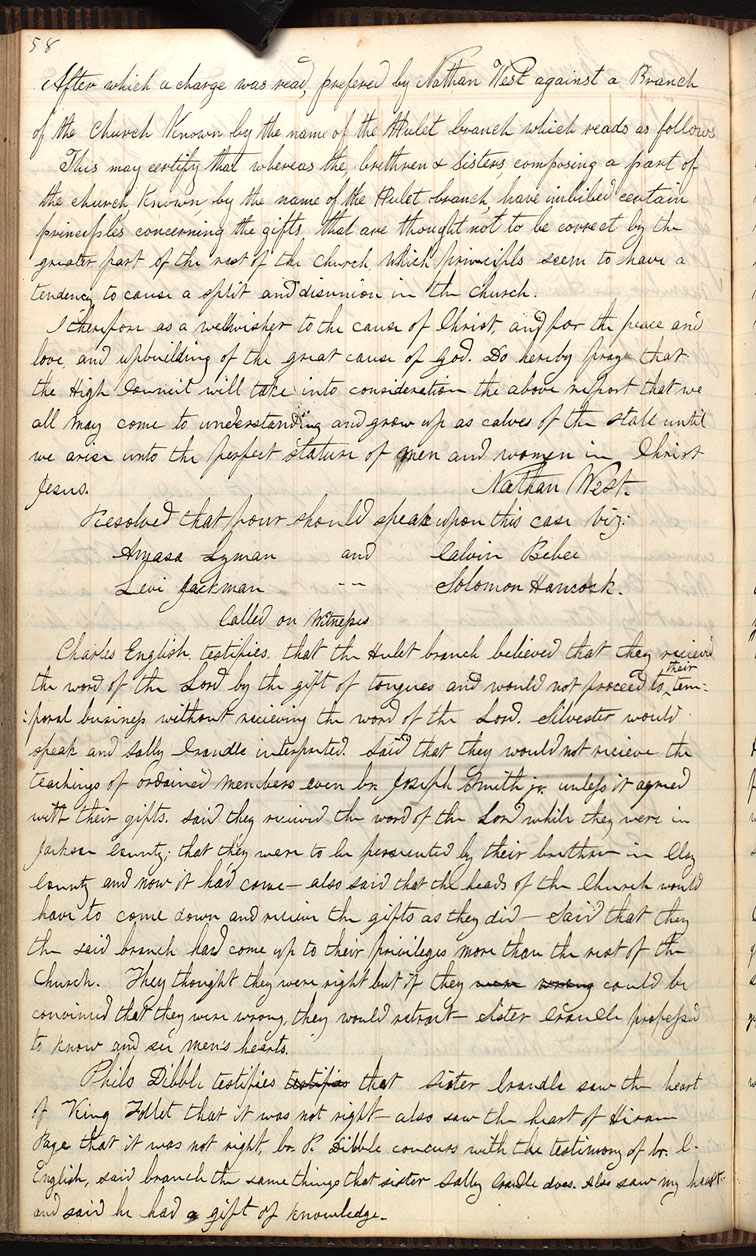 58
After which a charge was read, prefered by Nathan West against a Branch
of the Church Known by the name of the Hulet branch which reads as follows
This may certify that whereas the, brethren & Sisters composing a part of
the church, Known by the name of the Hulet branch, have imbibed certain
principles concerning the gifts that are thought not to be correct by the
greater part of the rest of the church, which principls seem to have a
tendency to cause a split and disunion in the church.
I therefore as a wellwisher to the cause of Christ, and for the peace and
love, and upbuilding of the great cause of God. Do hereby pray that
the High Council will take into consideration the above report that we
all may come to understanding and grow up as calves of the stall until
we arise unto the perfect stature of men and women in Christ
Jesus. Nathan West.
Resolved that four should speak upon this case viz:
Amasa Lyman and Calvin Bebee
Levi Jackman -- Solomon Hancock.
Called on Witneses
Charles English, testifies, that the Hulet branch believed that they recieved
the word of the Lord by the gift of tongues and would not proceed to their tem-
:poral business without recieving the word of the Lord. Silvester would
speak and Sally Crandle interpreted. Said that they would not recieve the
teachings of ordained members even br. Joseph Smith jr. unless it agreed
with their gifts. Said they recieved the word of the Lord while they were in
Jackson County; that they were to be persecuted by their brethren in Clay
County and now it had come— also said that the heads of the Church would
have to come down and recieve the gifts as they did— Said that they
the said branch had come up to their privileges more than the rest of the
Church. They thought they were right but if they were wrong could be
convinced that they were wrong, they would retract— Sister Crandle professed
to know and see men's hearts.
Philo Dibble testifies testifies that sister Crandle saw the heart
of King Follet that it was not right— also saw the heart of Hiram
Page that it was not right, br. P. Dibble concurs with the testimony of br. C.
English, said branch the same things that sister Sally Crandle does. Also saw my heart
and said he had a gift of knowledge.